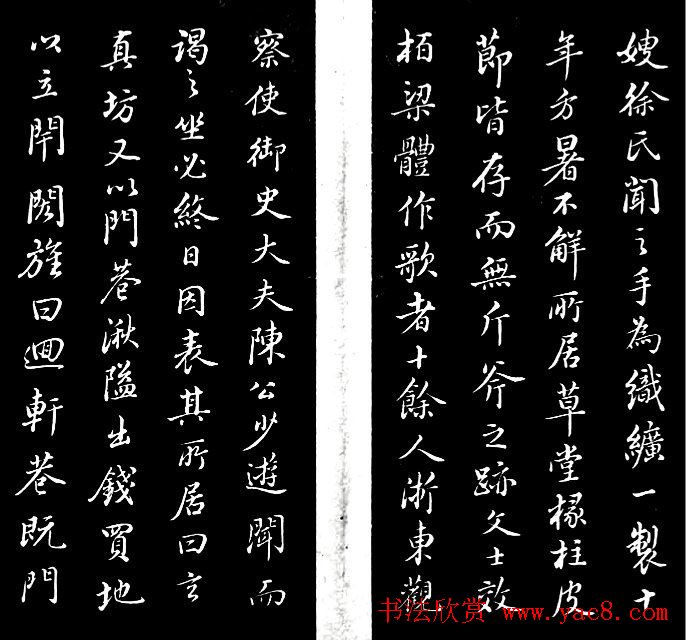 嫂徐氏聞之手為織纊一製十
年方暑不解所居草堂椽柱皮
節皆存而無斤斧之跡文士效
栢梁體作歌者十餘人浙東觀
察使御史大夫陳公少遊聞而
謁之坐必終日因表其所居曰玄
真坊又以門巷湫隘出錢買地
以立閈閎旌曰迴軒巷既門
书法欣赏 www.yac8.com